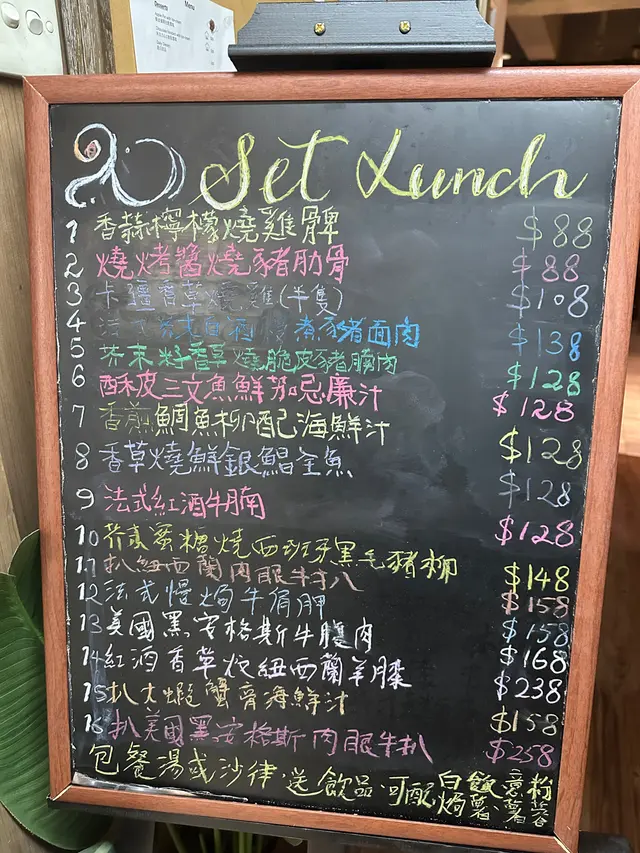 Menu
Set Lunch
1 香蒜檸檬燒雞髀 $88
2 燒烤醬燒豬肋骨 $88
3 卡疆香草燒雞(半隻) $108
4 白酒 煮豬面肉 $138
5 芥末籽香草燒脆皮豬腩肉 $128
6 酥皮三文魚鮮茄忌廉汁 $128
7 香煎鯛魚柳配海鮮汁 $128
8 香草燒鮮銀鯧全魚 $128
9 法式紅酒牛腩 $128
10 芥末蜜糖燒西班牙黑毛豬柳 $148
11 扒紐西蘭肉眼牛扒 $158
12 法式慢焗牛肩胛 $158
13 美國黑安格斯牛腹肉 $168
14 紅酒香草炆紐西蘭羊膝 $238
15 扒大蝦蟹膏海鮮汁 $158
16 扒美國黑安格斯肉眼牛扒 $258
包餐湯或沙律,送飲品,可配白飯、意粉、焗薯、薯蓉